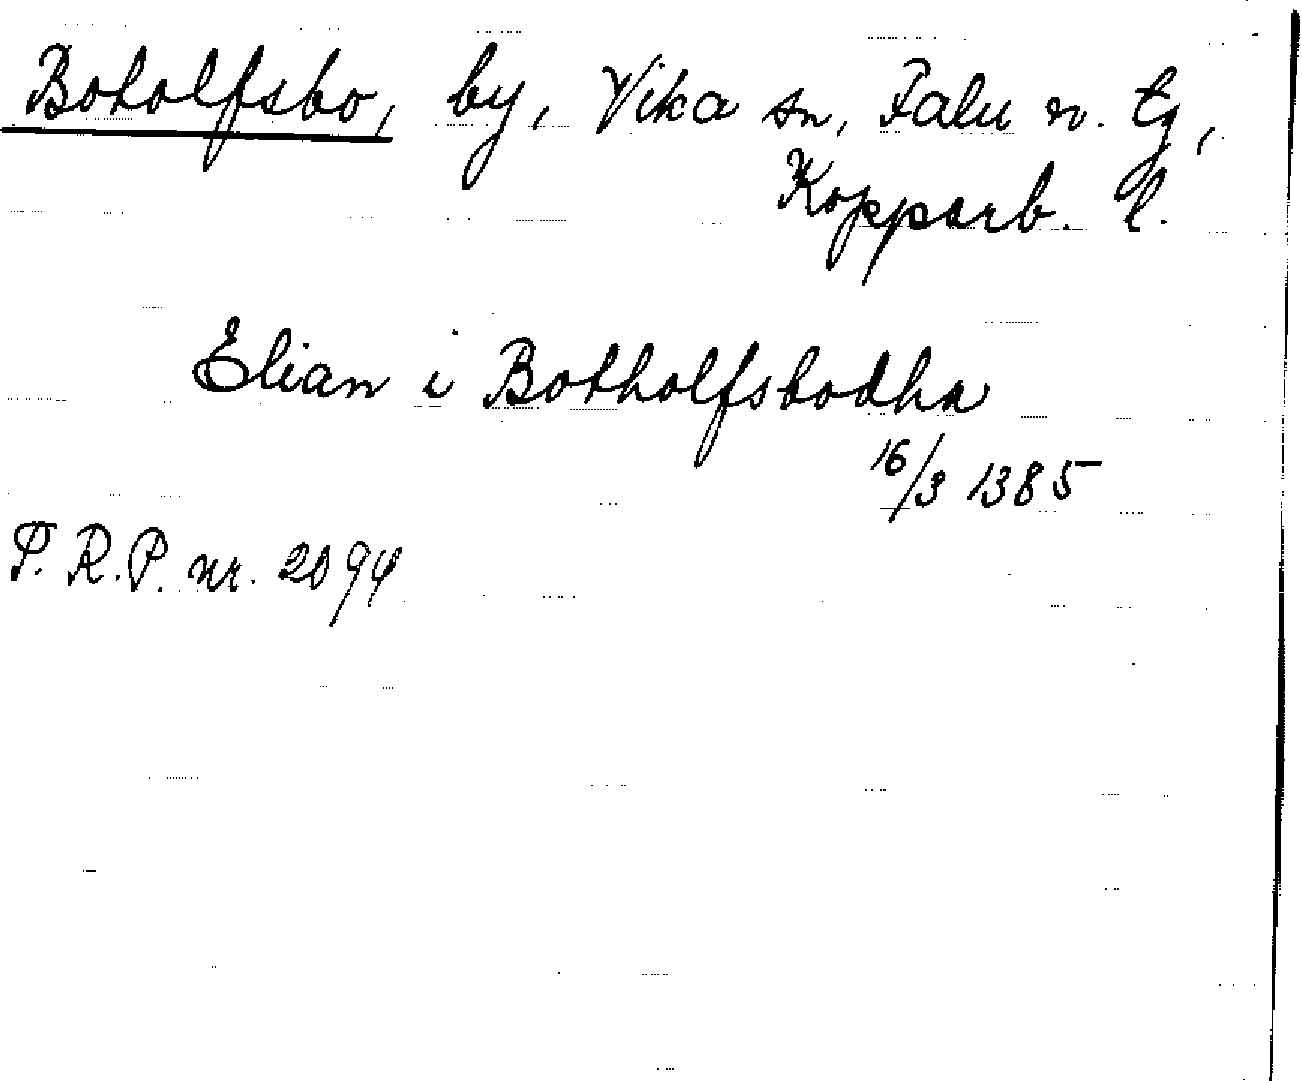 Botolfsbo, by, Vika sn, Falu n. tg,
Kopparb. l.
Elian i Botholfsbodha
16/3 1385
P. R. P. nr. 2094